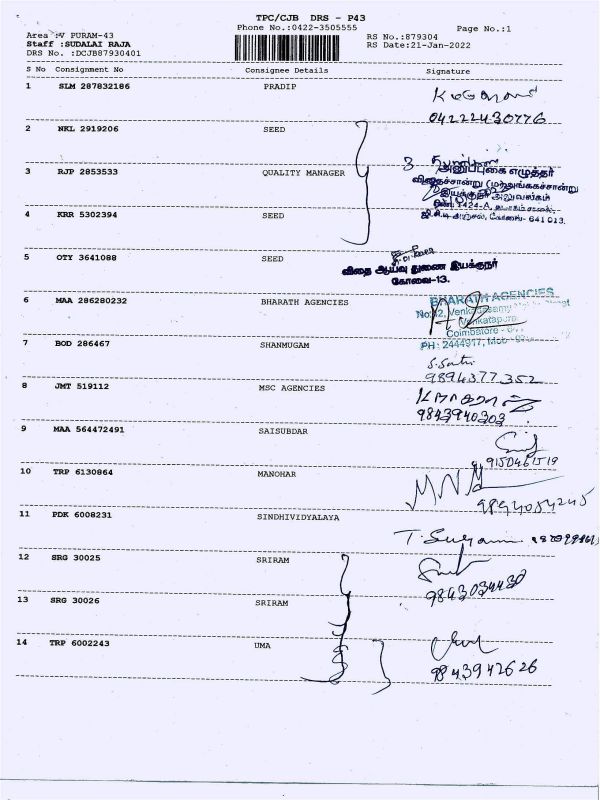 TPC/CJB DRS - P43
Phone No.:0422-3505555
Page No.:1
Area :V PURAM-43
RS No.:879304
Staff :SUDALAI RAJA
RS Date:21-Jan-2022
DRS No. :DCJB87930401
S No Consignment No Consignee Details Signature
1 SLM 287832186 PRADIP
04222430776
2 NKL 2919206 SEED
3 RJP 2853533 QUALITY MANAGER
அனுப்புகை எழுத்தர்
4 KRR 5302394 SEED
இயக்குநர் அலுவலகம்
1424-A,
கோவை- 641 013.
5 OTY 3641088 SEED
விதை ஆய்வு துணை இயக்குநர்
கோவை-13.
6 MAA 286280232 BHARATH AGENCIES
BHARATH AGENCIES
Venkatapura
Coimbatore -
PH: 2444917, Mob
7 BOD 286467 SHANMUGAM
9894377352
8 JMT 519112 MSC AGENCIES
9843940303
9 MAA 564472491 SAISUBDAR
9150461519
10 TRP 6130864 MANOHAR
9894054245
11 PDK 6008231 SINDHIVIDYALAYA
12 SRG 30025 SRIRAM
9843034430
13 SRG 30026 SRIRAM
14 TRP 6002243 UMA
9843942626